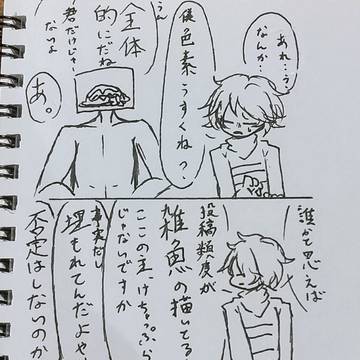 あれ…?
なんか…
僕色素
うすくね?
うん
全体
的にだね
君だけじゃ
ないよ
あ。
誰かと思えば
投稿頻度が
雑魚の描いてる
じゃないですか
事実だし
埋もれてんだよや
否定はしないのか